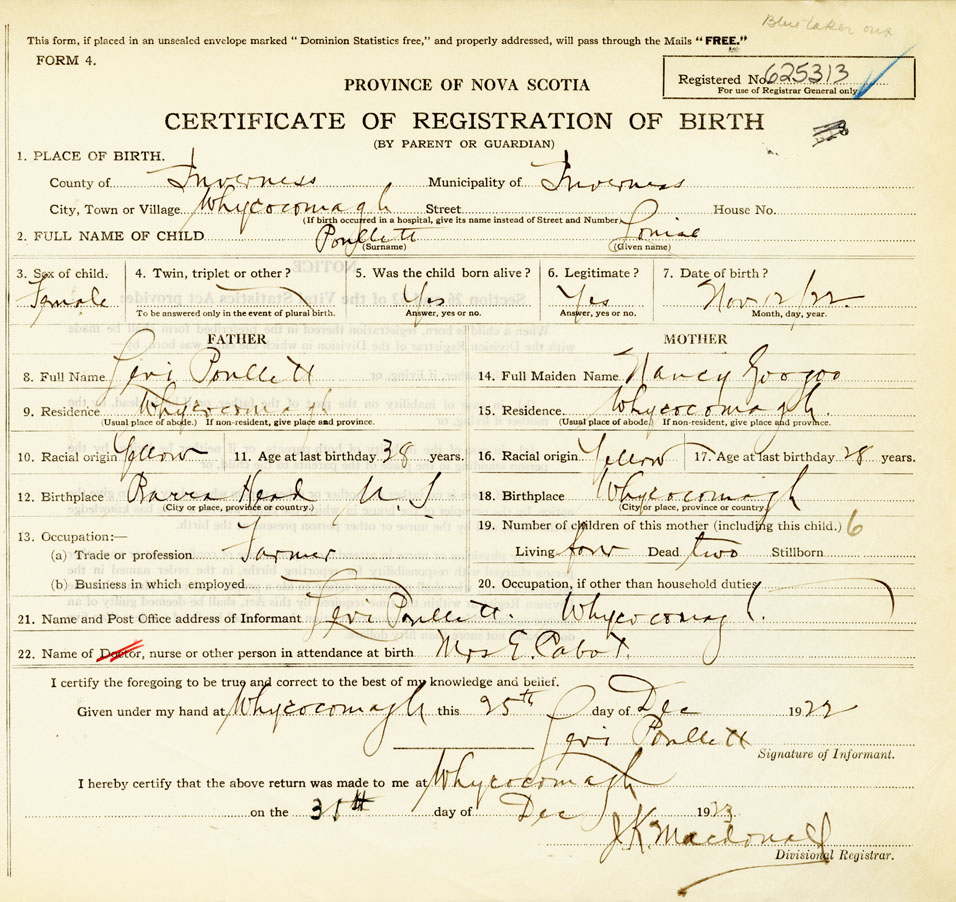 Blue taken out
This form, if placed in an unsealed envelope marked "Dominion Statistics free," and properly addressed, will pass through the Mails "FREE."
FORM 4.
Registered No. 625313
For use of Registrar General only
PROVINCE OF NOVA SCOTIA
CERTIFICATE OF REGISTRATION OF BIRTH
(BY PARENT OR GUARDIAN)
1. PLACE OF BIRTH.
County of Inverness Municipality of Inverness
City, Town or Village Whycocomagh Street House No.
(If birth occurred in a hospital, give its name instead of Street and Number)
2. FULL NAME OF CHILD Poullett
(Surname) (Given name)
3. Sex of child. 4. Twin, triplet or other? 5. Was the child born alive? 6. Legitimate? 7. Date of birth?
Female Yes Yes Nov 12/22.
To be answered only in the event of plural birth. Answer, yes or no. Answer, yes or no. Month, day, year.
FATHER MOTHER
8. Full Name Levi Poullett 14. Full Maiden Name Nancy Googoo
9. Residence Whycocomagh 15. Residence. Whycocomagh.
(Usual place of abode.) If non-resident, give place and province. (Usual place of abode.) If non-resident, give place and province.
10. Racial origin Yellow 11. Age at last birthday 38 years. 16. Racial origin Yellow 17. Age at last birthday 28 years.
12. Birthplace Barra Head N. S 18. Birthplace Whycocomagh
(City or place, province or country.) (City or place, province or country.)
13. Occupation:— 19. Number of children of this mother (including this child.) 6
(a) Trade or profession Farmer Living four Dead two Stillborn
(b) Business in which employed 20. Occupation, if other than household duties
21. Name and Post Office address of Informant Levi Poullett. Whycocomagh.
22. Name of Doctor, nurse or other person in attendance at birth Mrs E. Pabot.
I certify the foregoing to be true and correct to the best of my knowledge and belief.
Given under my hand at Whycocomagh this 25th day of Dec 1922
Levi Poullett
Signature of Informant.
I hereby certify that the above return was made to me at Whycocomagh
on the day of Dec 1923
J. K. Macdonald
Divisional Registrar.